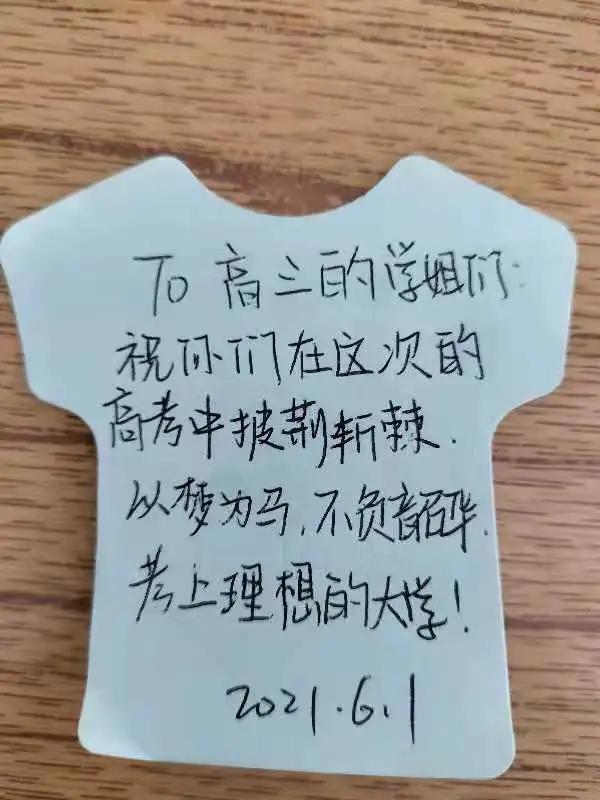 To 高三的学姐们:
祝你们在这次的
高考中披荆斩棘.
以梦为马,不负韶华.
考上理想的大学!
2021.6.1